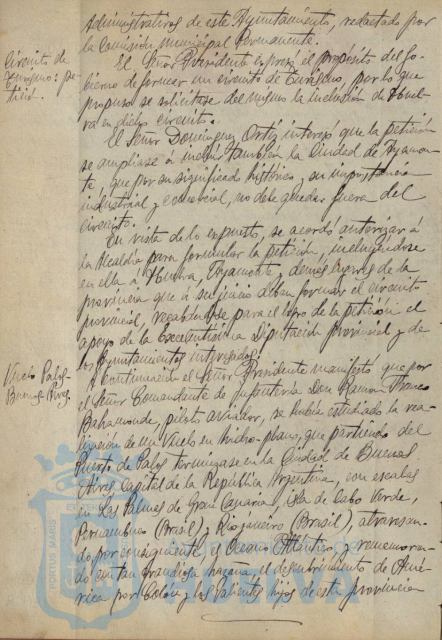 administrativas de este Ayuntamiento, redactado por
la Comisión Municipal Permanente.
Circuito de
Turismo: pe-
tición.
El Señor Presidente expuso el propósito del Go-
bierno de formar un circuito de Turismo, por lo que
propuso se solicitase del mismo la inclusión de Huel-
va en dicho circuito.
El Señor Dominguez Ortiz interesó que la petición
se ampliase a incluir también la Ciudad de Ayamon-
te, que por su significado histórico y su importancia
industrial y comercial, no debe quedar fuera del
circuito.
En vista de lo expuesto, se acordó autorizar á
la Alcaldía para formular la petición, incluyéndose
en ella á Huelva, Ayamonte y demás lugares de la
provincia que á su juicio deban formar el circuito
provincial, recabándose para el logro de la petición el
apoyo de la Excelentísima Diputación provincial y de
los Ayuntamientos interesados.
Vuelo Palos-
Buenos Aires.
A continuación el Señor Presidente manifestó que por
el Señor Comandante de Infantería Don Ramón Franco
Bahamonde, piloto aviador, se había estudiado la rea-
lización de un vuelo en hidro-plano, que partiendo del
Puerto de Palos terminase en la Ciudad de Buenos
Aires capital de la República Argentina, con escalas
en Las Palmas de Gran Canaria, isla de Cabo Verde,
Pernambuco (Brasil) y Rio Janeiro (Brasil), atravesan-
do por consiguiente el Océano Atlántico, y rememoran-
do con tan grandiosa hazaña el descubrimiento de Amé-
rica por Colón y los valientes hijos de esta provincia
PORTUS MARIS
HUELVA